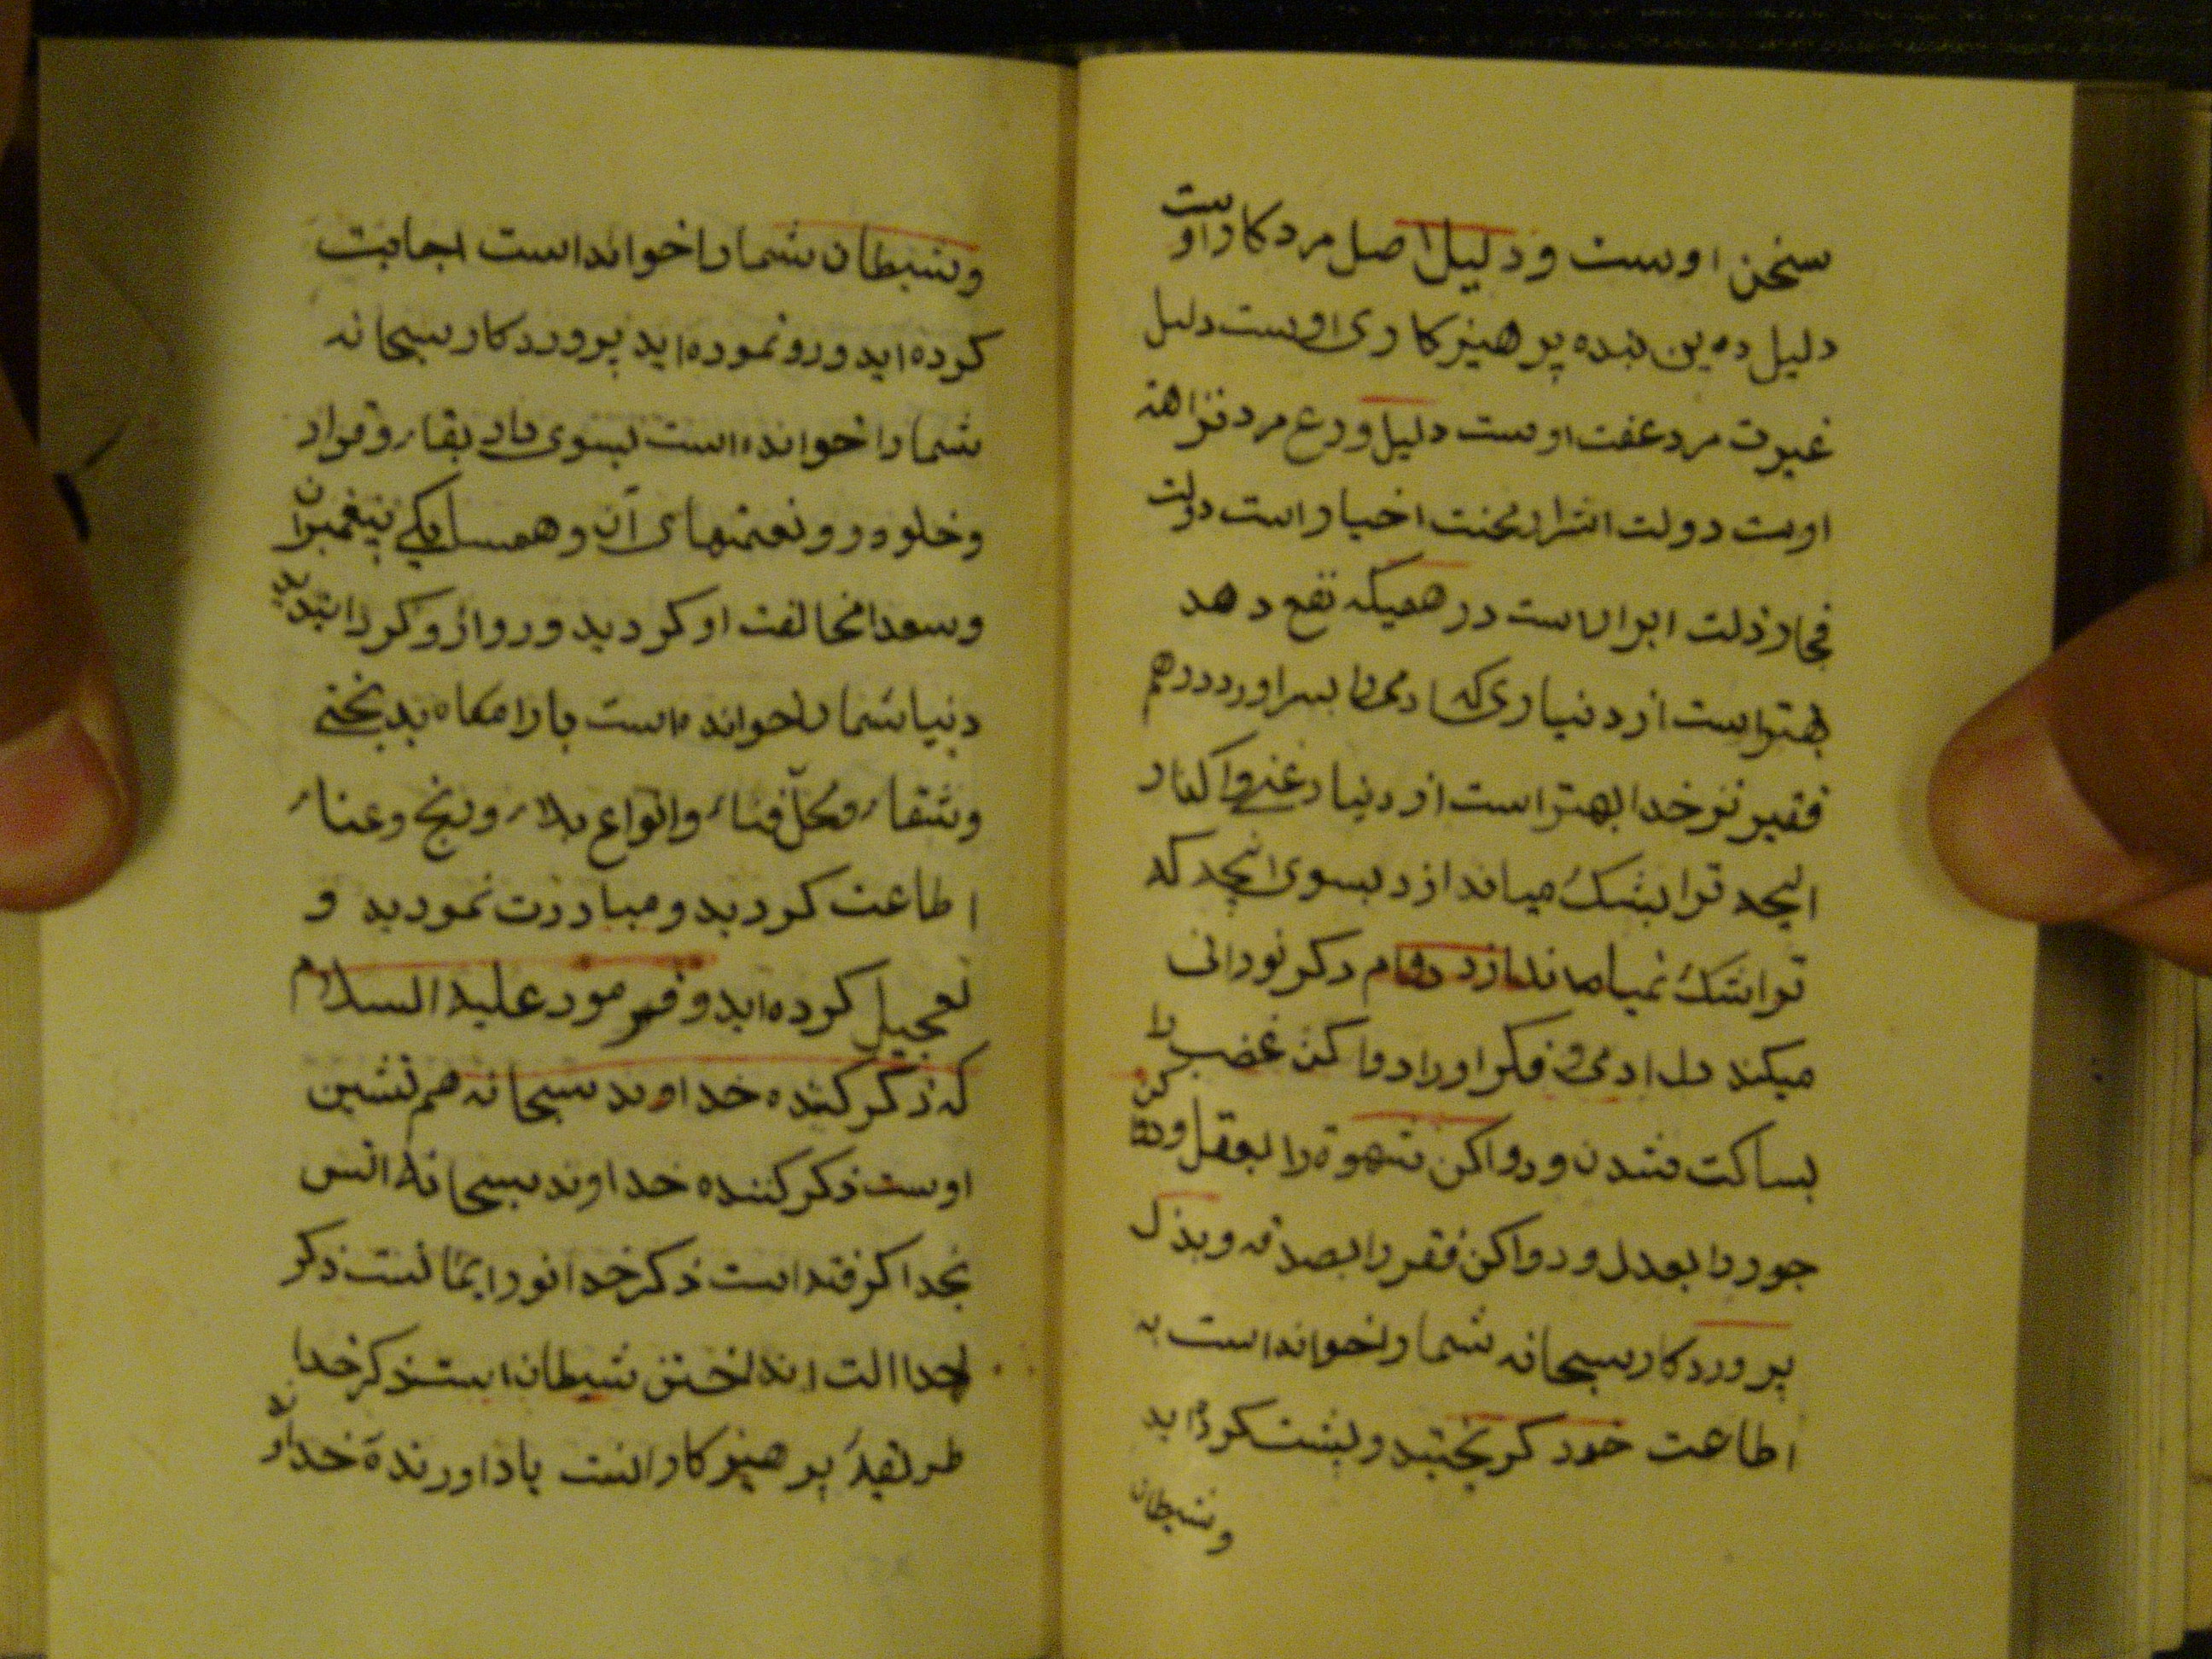 سخن اوست و دلیل اصل مرد کار اوست
دلیل دین بنده پرهیزکاری اوست دلیل
غیرت مرد عفت اوست دلیل ورع مرد نزاهة
اوست دولت اشرار محنت اخیار است دولت
فجار ذلت ابرار است درهمیکه نفع دهد
بهتر است از دیناری که ادمی را بسر اورد درهم
فقیر نزد خدا بهتر است از دینار غنی واگذار
انچه ترا بشک میاندازد بسوی انچه که
ترا بشک نمی اندازد دوام ذکر نورانی
میکند دل ادمی و فکر او را دوا کن غضب را
بساکت شدن و دوا کن شهوة را بعقل و دوا کن
جور را بعدل و دوا کن فقر را بصدقه و بذل
پروردکار سبحانه شما را خوانداست به
اطاعت خود کریختید و پشت کرده اید
و شیطان
و شیطان شما را خوانداست اجابت
کرده اید و رو نموده اید پروردکار سبحانه
شما را خوانده است بسوی دار بقاء و قرار
و خلوه و نعمتهای آن و همسایکی پیغمبران
و سعدا مخالفت او کردید و رو از او کردانیدید
دنیا شما را خوانده است بارامکاه بدبختی
و شقاء و محل فناء و انواع بلاء و رنج و عناء
اطاعت کردید و مبادرت نمودید و
تعجیل کرده اید و فرمود علیه السلام
که ذکر کننده خداوند سبحانه هم نشین
اوست ذکر کننده خداوند سبحانه انس
بخدا کرفته است ذکر خدا نور ایمانست ذکر
خدا الت انداختن شیطان است ذکر خدا
طریقهٔ پرهیزکارانست یاد اورندهٔ خداوند